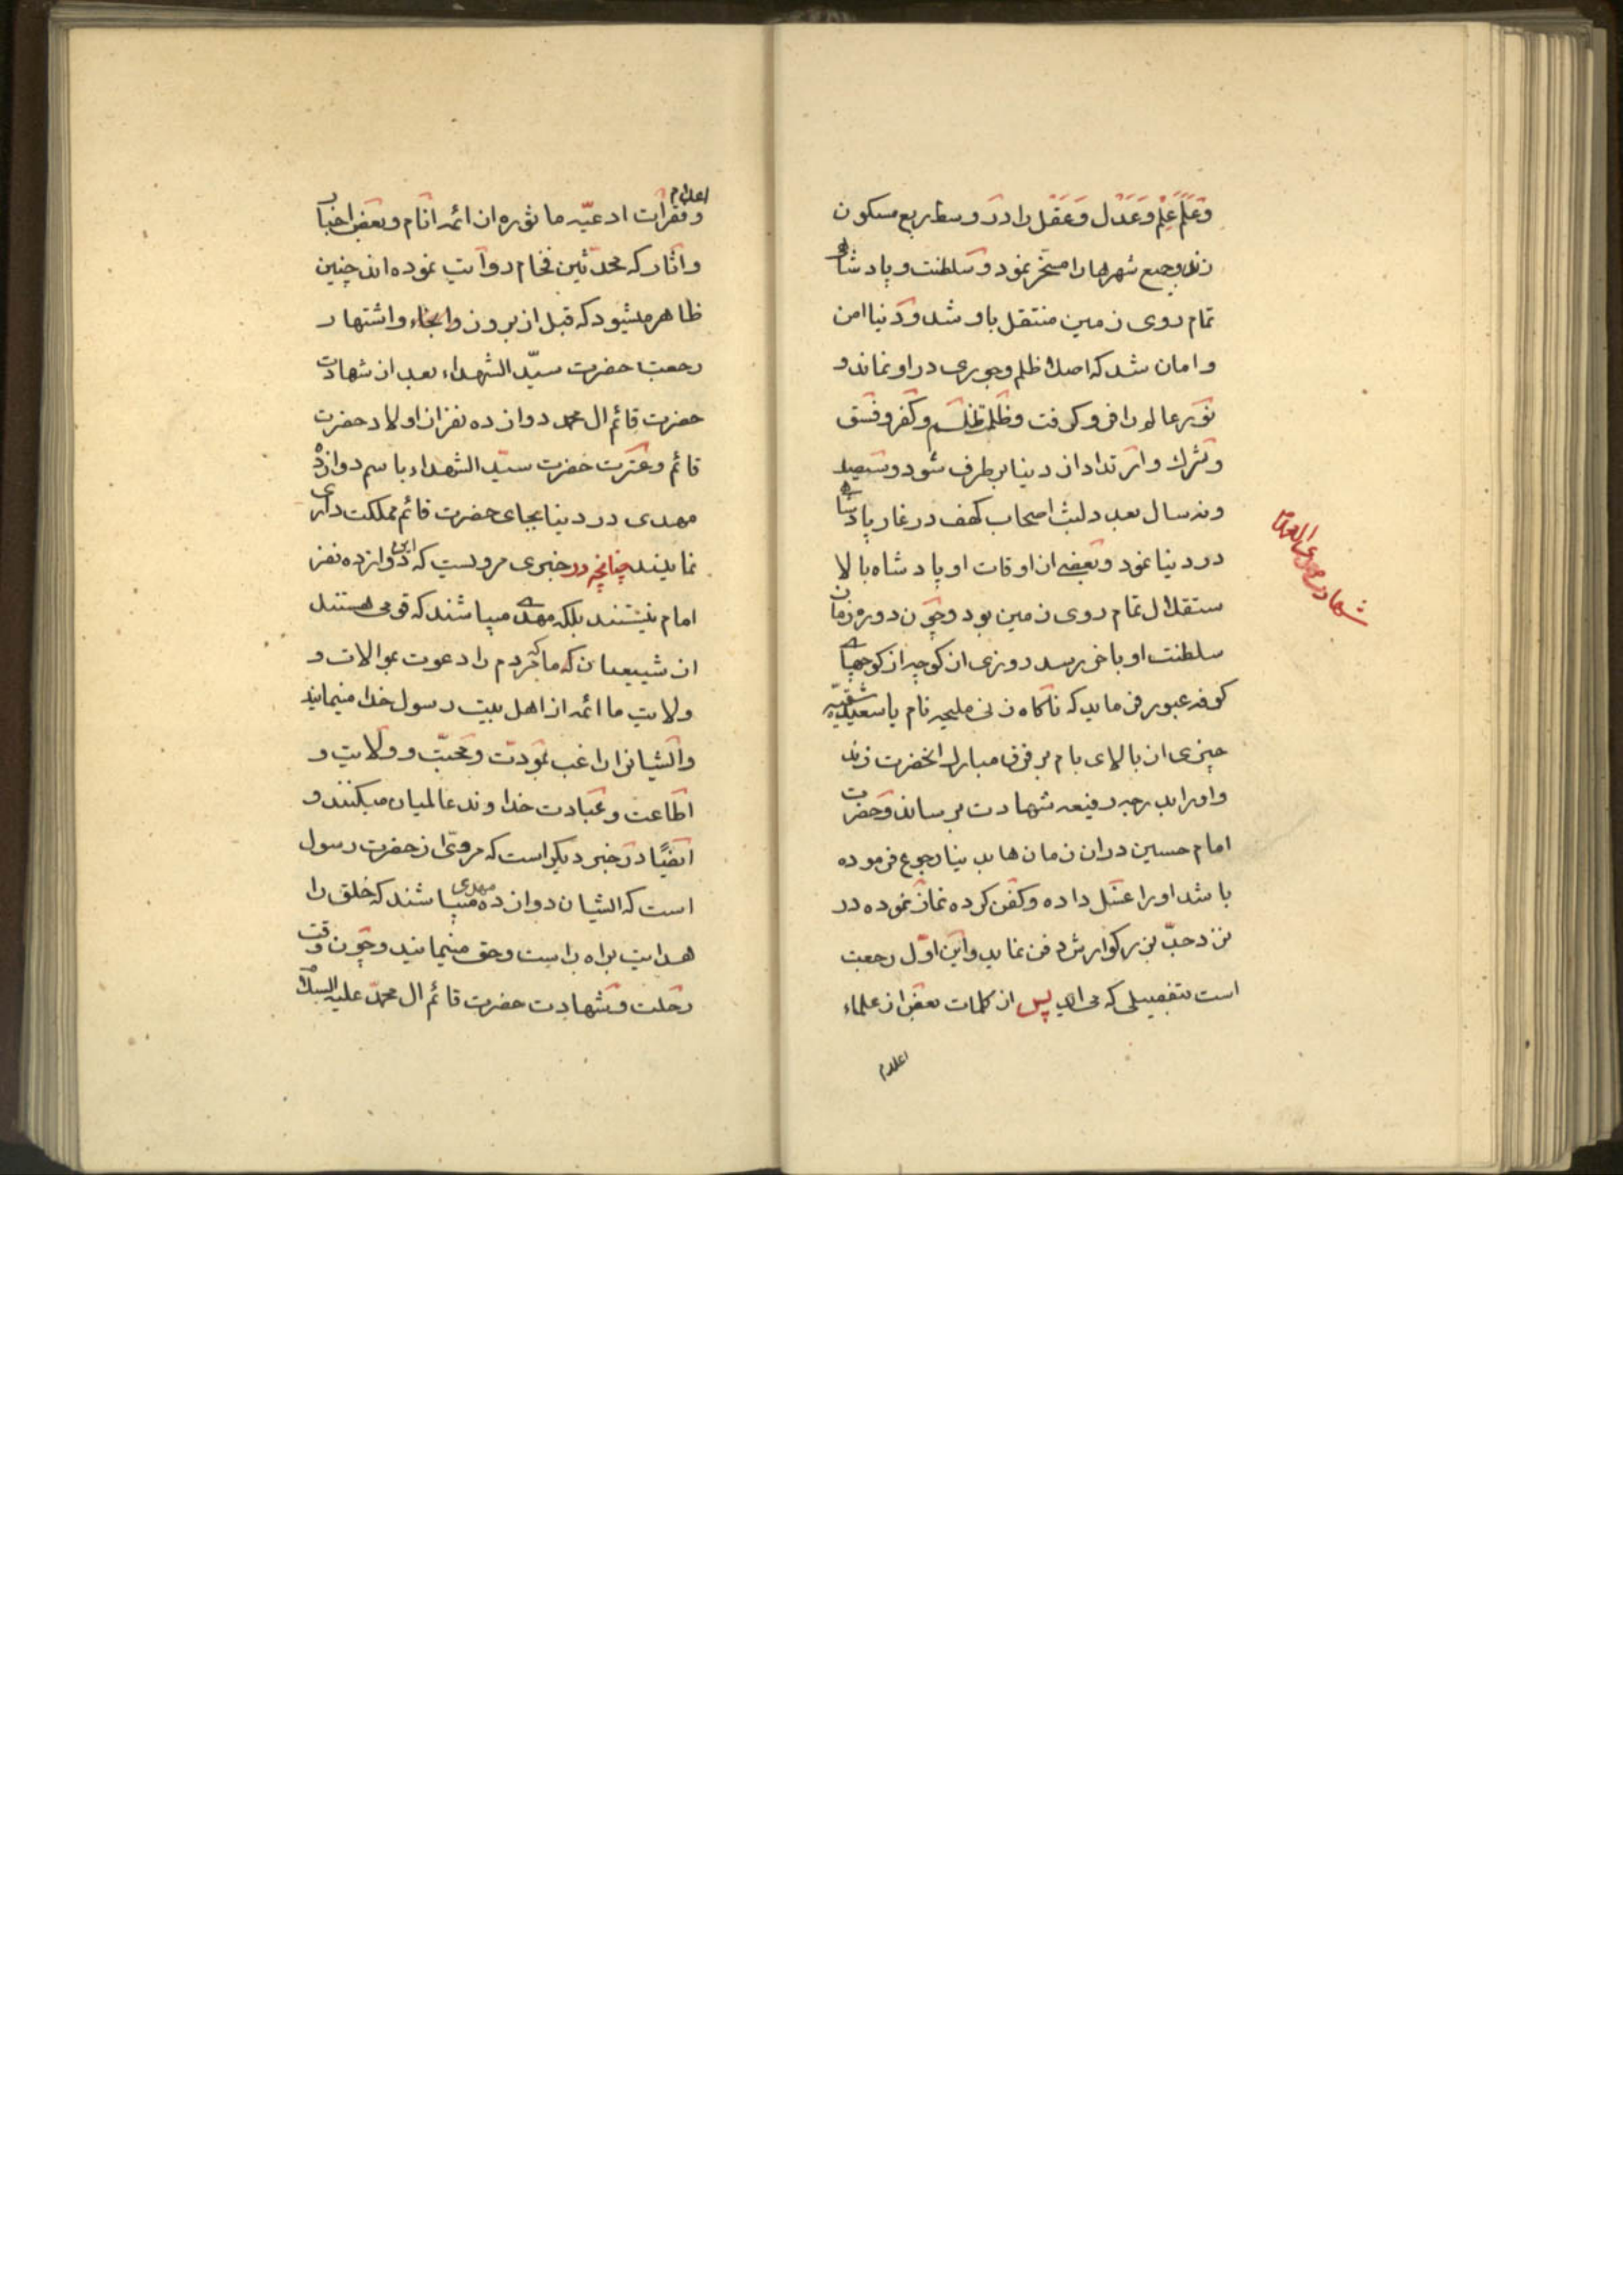 وعَلَم عِلْم وعَدْل وعَقْل را در وسط ربع مسکون
زند و جمیع شهرها را مسخر نمود و سلطنت و پادشاهی
تمام روی زمین منتقل باو شد و دنیا امن
و امان شد که اصلا ظلم و جوری در او نماند و
نور عالم را فرو کرفت و ظلمت ظلم و کفر و فسق
و شرک و ارتداد از دنیا بر طرف شود و سیصد
و نه سال بعدد لبث اصحاب کهف در غار پادشاهی
در دنیا نمود و بعضی از اوقات او پادشاه بالا
ستقلال تمام روی زمین بود و چون دوره زمان
سلطنت او باخر رسد روزی از کوچه از کوچهای
کوفه عبور فرماید که ناکاه زنی ملیحه نام یا سعیده شقیه
چیزی از بالای بام بر فرق مبارک انحضرت زند
و او را بدرجه رفیعه شهادت برساند و حضرت
امام حسین در ان زمان ها بدنیا رجوع فرموده
باشد او را غسل داده و کفن کرده نماز نموده در
نزد جدّ بزرکوارش دفن نماید و این اوّل رجعت
است بتفصیلی که می اید پس از کلمات بعض از علماء
اعلام
اعلام
و فقرات ادعیّه ماثوره از ائمه انام و بعض اخبار
و اثار که محدثین فخام روایت نموده اند چنین
ظاهر میشود که قبل از بروز و اشتهار
رجعت حضرت سیّد الشهداء بعد از شهادت
حضرت قائم ال محمد دوازده نفر از اولاد حضرت
قائم و عترت حضرت سیّد الشهداء باسم دوازده
مهدی در دنیا بجای حضرت قائم مملکت داری
نمایند چنانچه در خبری مرویست که این دوازده نفر
امام نیستند بلکه مهدی میباشند که قومی هستند
از شیعیان که ما که مردم را دعوت بموالات و
ولایت ما ائمه از اهل بیت رسول خدا مینمایند
و ایشانرا راغب بمودّت و محبّت و ولایت و
اطاعت و عبادت خداوند عالمیان میکنند و
ایضًا در خبر دیکر است که مرویّ از حضرت رسول
است که ایشان دوازده مهدی میباشند که خلق را
هدایت براه راست و حق مینمایند و چون وقت
رحلت و شهادت حضرت قائم ال محمّد علیه السلام